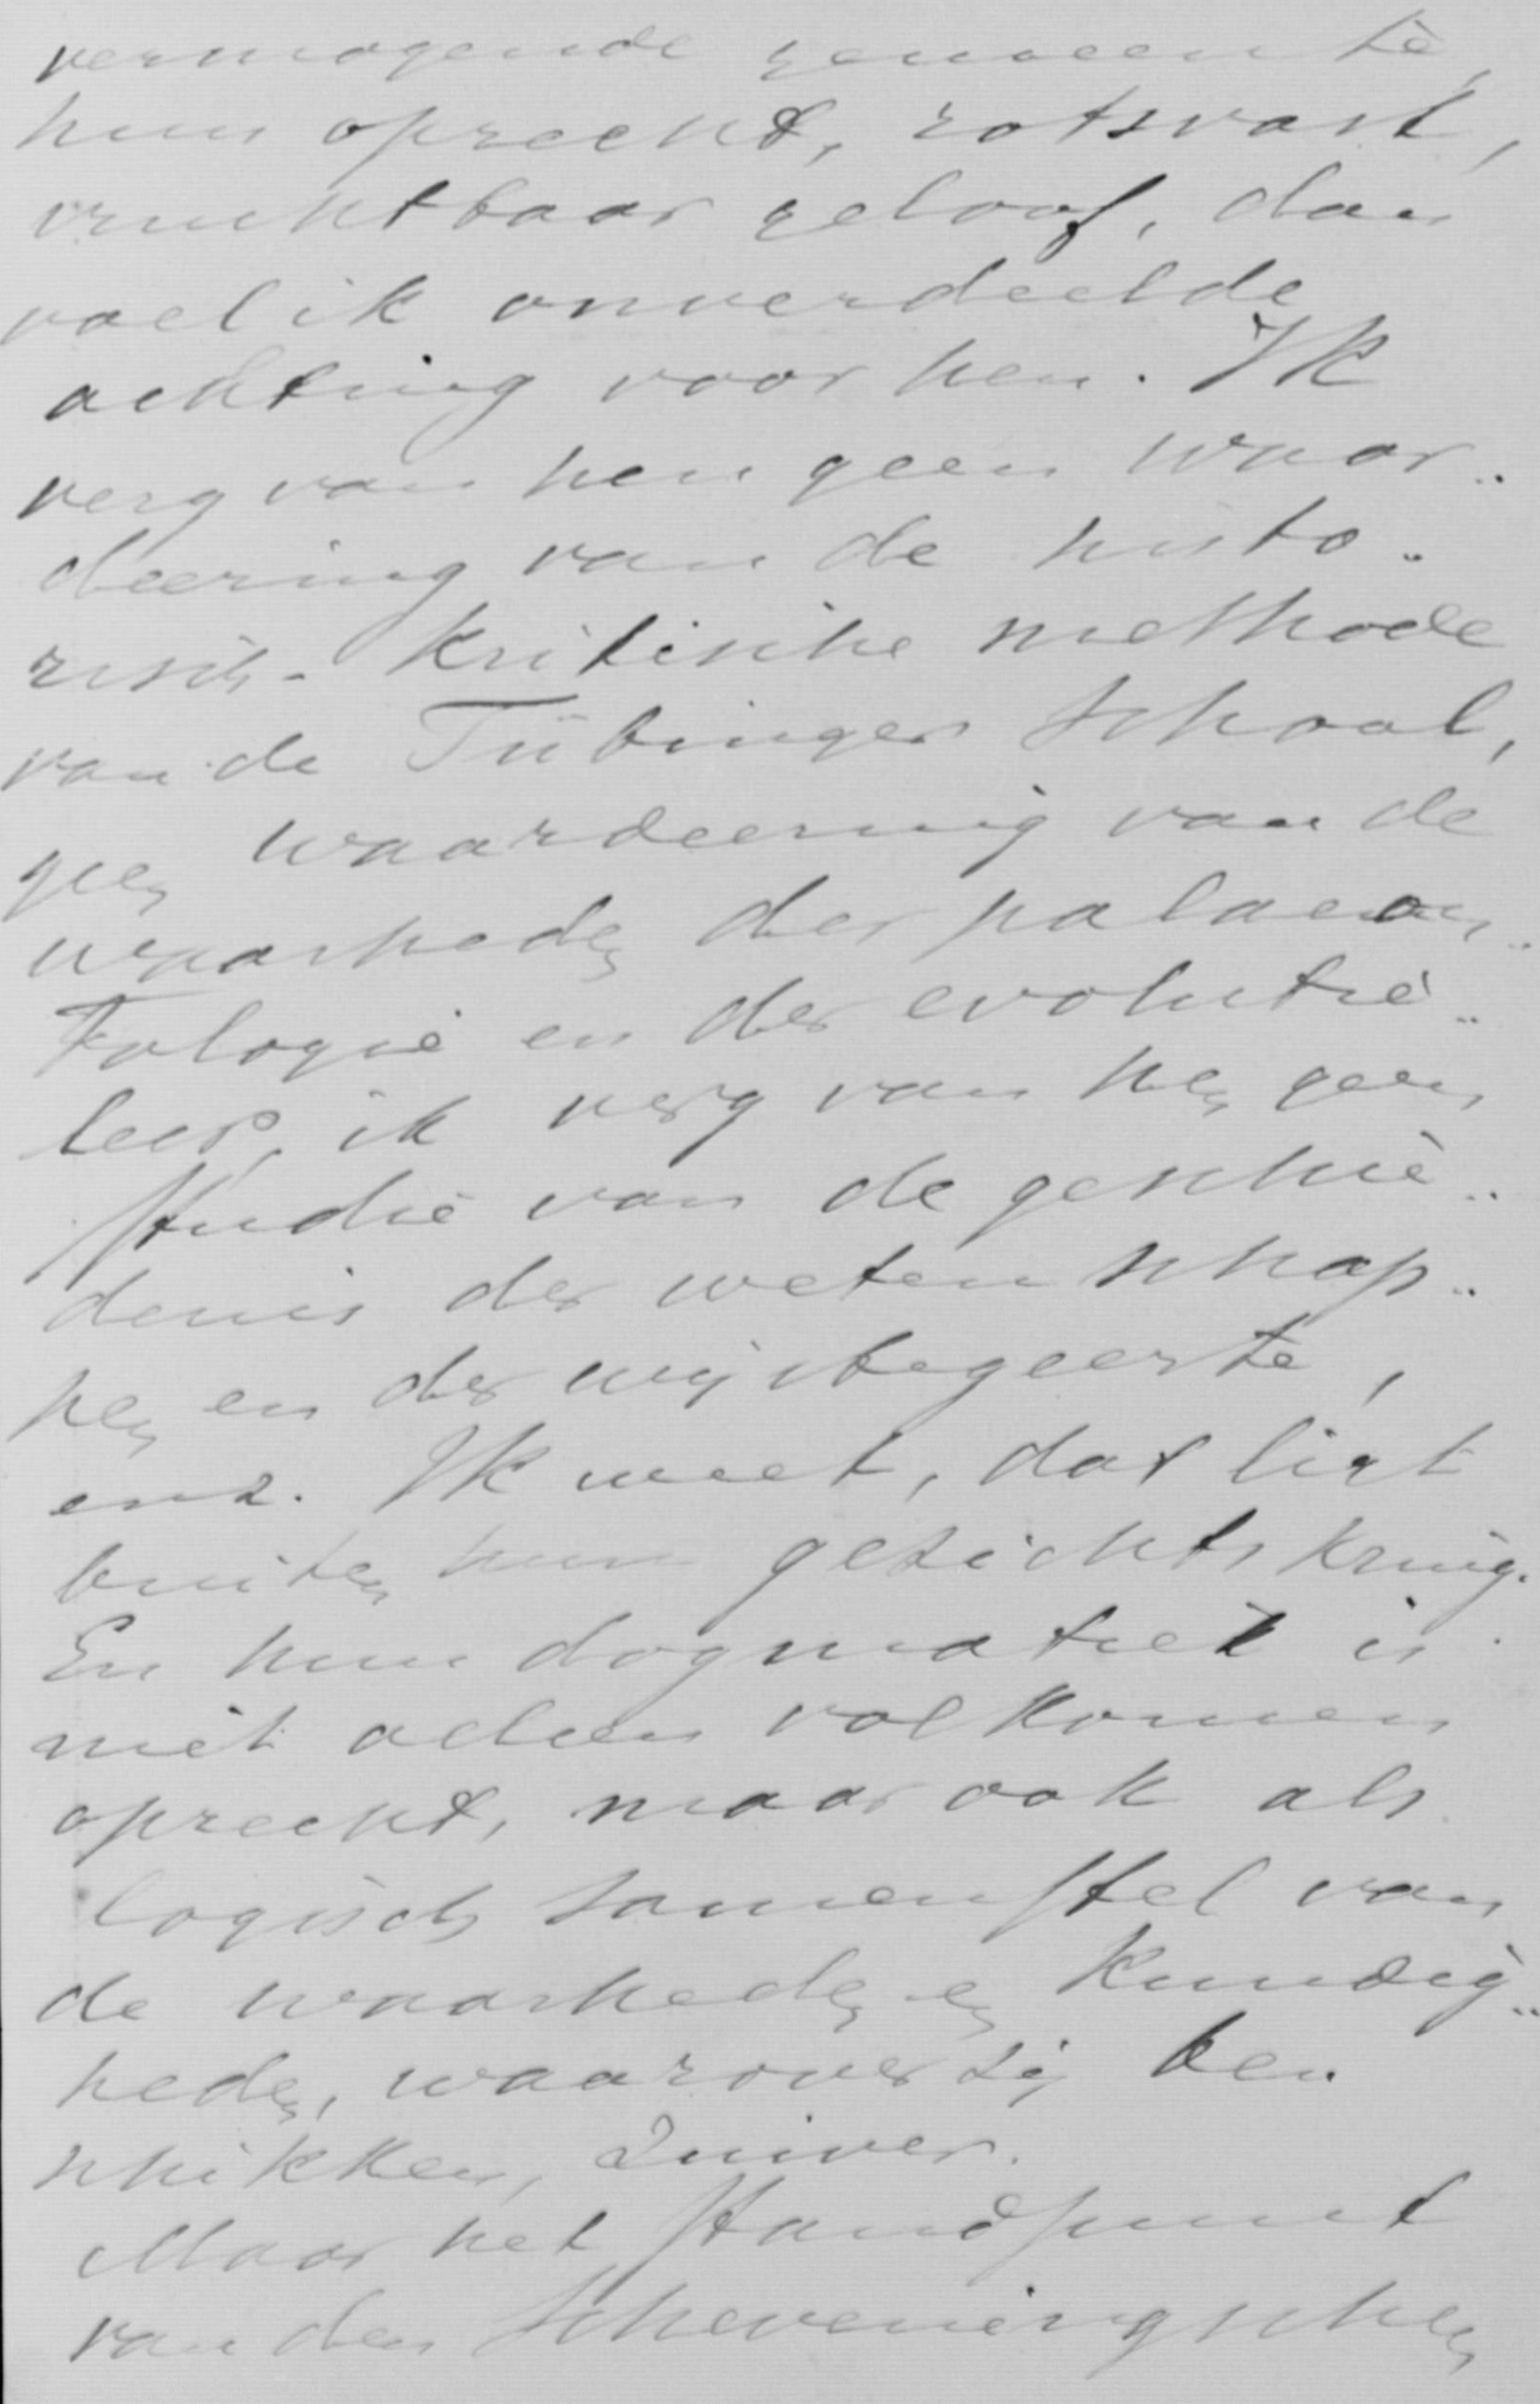 vermogende gemeente,
hun oprecht, rotsvast,
vruchtbaar geloof, dan
voel ik onverdeelde
achting voor hen. Ik
verg van hen geen waar..
deering van de histo..
risch-kritische methode
van de Tübinger school,
geen waardeering van de
waarheden der palaeon..
tologie en der evolutie..
leer, ik verg van hen geen
studie van de geschie..
denis der wetenschap..
pen en der wijsbegeerte,
enz. Ik weet, dat ligt
buiten hun gezichtskring.
En hun dogmatiek is
niet alleen volkomen
oprecht, maar ook als
logisch samenstel van
de waarheden en kundig..
heden, waarover zij be..
schikken, zuiver.
Maar het standpunt
van den Scheveningschen